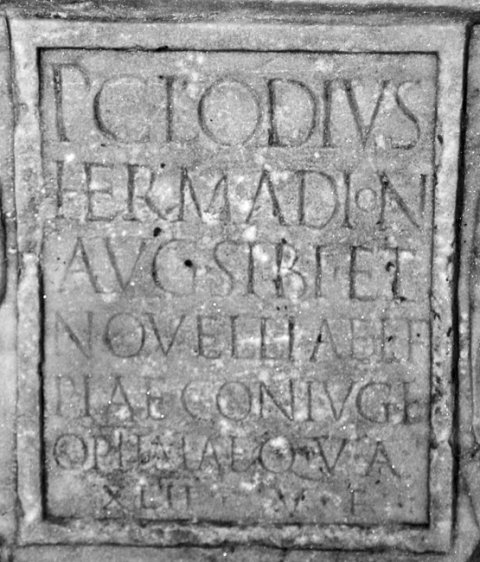 P CLODIVS
HERMADION
AVG·SIBI·ET
NOVELLIAE
PIAE CONIVGI
OPTIMAE Q V A
XLII